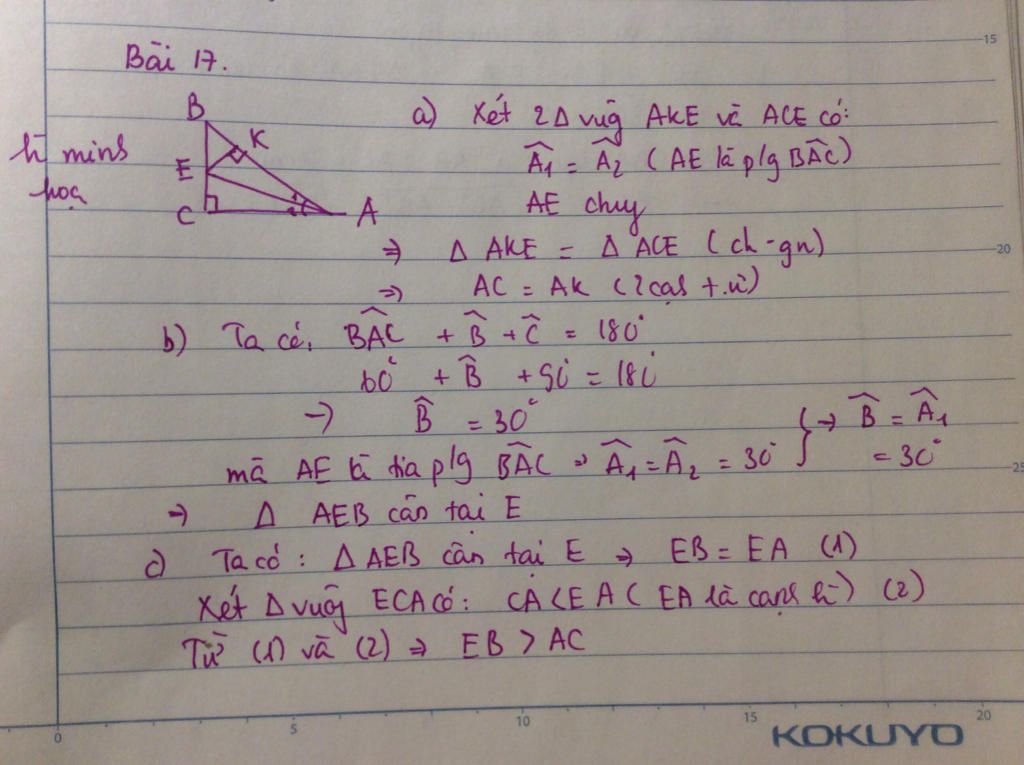 Bài 17.
h̀ minh
hoạ
B
K
E
C
A
1
2
a) Xét 2Δ vug̃ AKE và ACE có:
Â1 = Â2 (AE là p/g BÂC)
AE chug
⇒ Δ AKE = Δ ACE (ch-gn)
⇒ AC = AK (2 cạh t.ứ)
b) Ta có: BÂC + B̂ + Ĉ = 180°
60° + B̂ + 90° = 180°
→ B̂ = 30°
mà AE là tia p/g BÂC ⇒ Â1 = Â2 = 30° } → B̂ = Â1
= 30°
⇒ Δ AEB cân tại E
c) Ta có: Δ AEB cân tại E ⇒ EB = EA (1)
Xét Δ vug̃ ECA có: CA < EA (EA là cạnh h̀) (2)
Từ (1) và (2) ⇒ EB > AC
15
20
25
0
5
10
15
20
KOKUYO